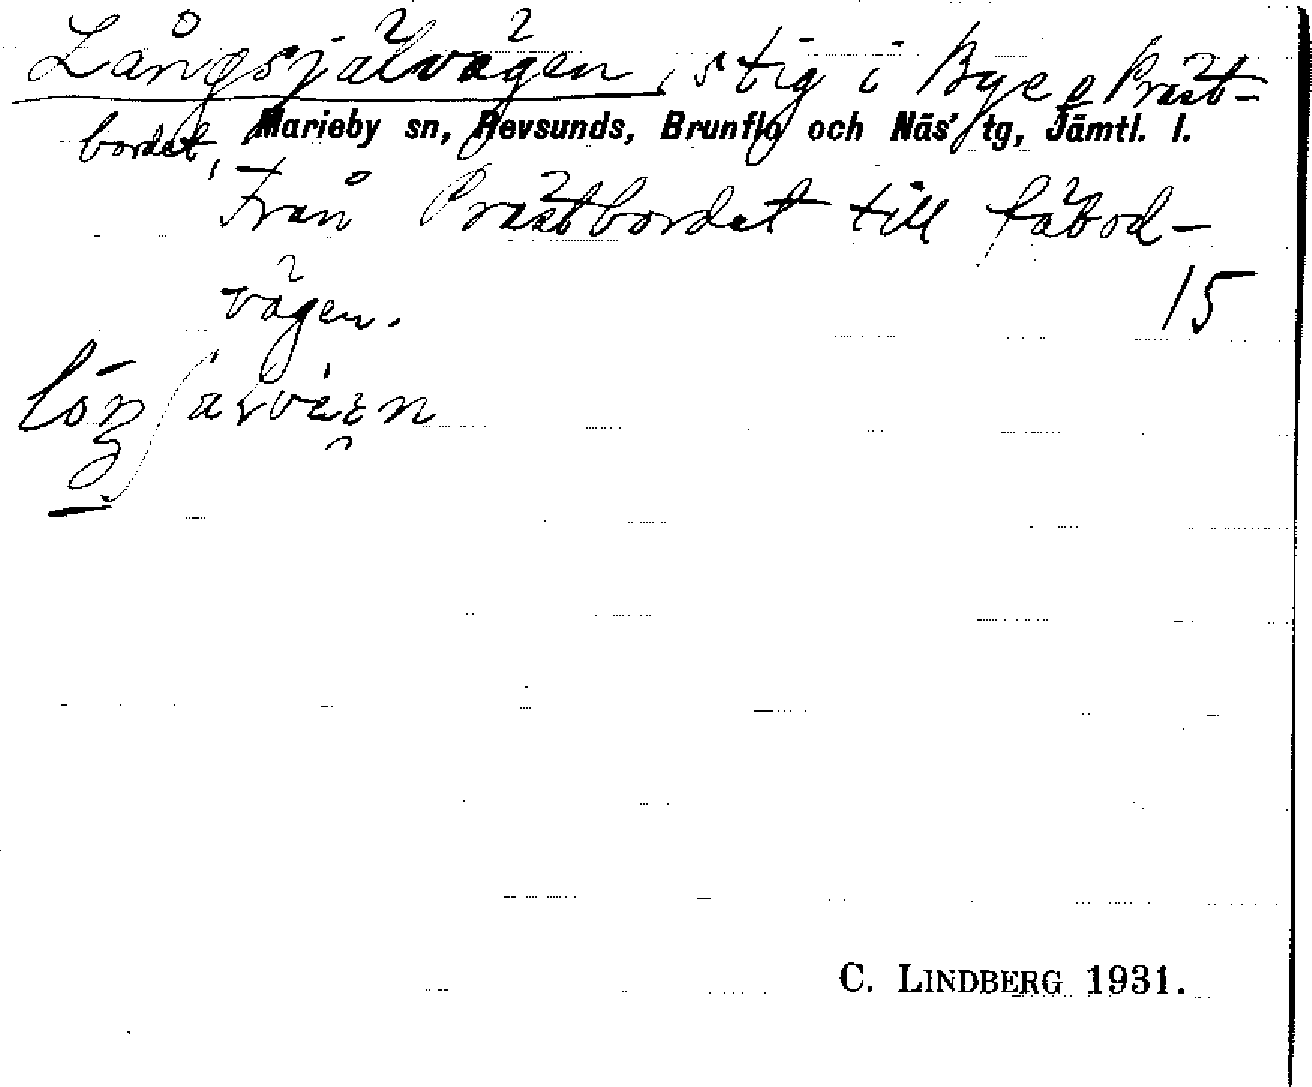 Långsjälvägen, stig i Bye o Präst-
bordet, Marieby sn, Revsunds, Brunflo och Näs' tg, Jämtl. l.
Från Prästbordet till fäbod-
vägen. 15
C. LINDBERG 1931.